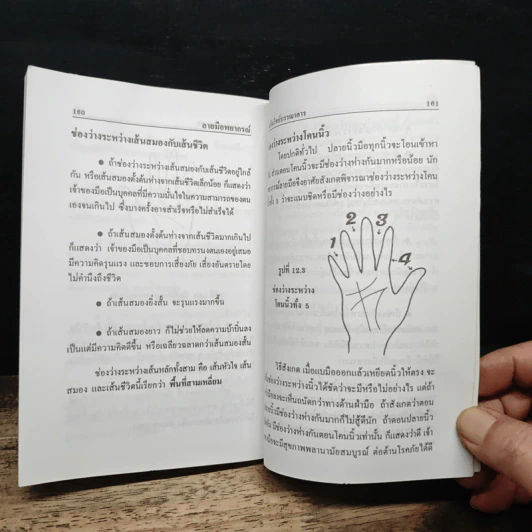 160
ลายมือพยากรณ์
ช่องว่างระหว่างเส้นสมองกับเส้นชีวิต
● ถ้าช่องว่างระหว่างเส้นสมองกับเส้นชีวิตอยู่ใกล้
กัน หรือเส้นสมองตั้งต้นห่างจากเส้นชีวิตเล็กน้อย ก็แสดงว่า
เจ้าของมือเป็นบุคคลที่มีความมั่นใจในความสามารถของตน
เองจนเกินไป ซึ่งบางครั้งอาจสำเร็จหรือไม่สำเร็จได้
● ถ้าเส้นสมองตั้งต้นห่างจากเส้นชีวิตมากเกินไป
ก็แสดงว่า เจ้าของมือเป็นบุคคลที่ชอบทรนงตนเองอยู่เสมอ
มีความคิดรุนแรง และชอบการเสี่ยงภัย เสี่ยงอันตรายโดย
ไม่คำนึงถึงชีวิต
● ถ้าเส้นสมองยิ่งสั้น จะรุนแรงมากขึ้น
● ถ้าเส้นสมองยาว ก็ไม่ช่วยให้ลดความบ้าบิ่นลง
เป็นแต่มีความคิดดีขึ้น หรือเฉลียวฉลาดกว่าเส้นสมองสั้น
ช่องว่างระหว่างเส้นหลักทั้งสาม คือ เส้นหัวใจ เส้น
สมอง และเส้นชีวิตนี้เรียกว่า พื้นที่สามเหลี่ยม
161
ว่างระหว่างโคนนิ้ว
โดยปกติทั่วไป ปลายนิ้วมือทุกนิ้วจะโอนเข้าหา
ส่วนตอนโคนนิ้วจะมีช่องว่างห่างกันมากหรือน้อย นัก
การณ์ลายมือจึงอาศัยสังเกตพิจารณาช่องว่างระหว่างโคน
5 ว่าจะแนบชิดหรือมีช่องว่างอย่างไร
1
2
3
4
รูปที่ 12.3
ช่องว่างระหว่าง
โคนนิ้วทั้ง 5
วิธีสังเกต เมื่อแบมือออกแล้วเหยียดนิ้วให้ตรง จะ
ช่องว่างระหว่างนิ้วได้ชัดว่าจะมีหรือไม่อย่างไร แต่ถ้า
จะเห็นถนัดกว่าทางด้านฝ่ามือ ถ้าสังเกตว่าตอน
นิ้วมีช่องว่างห่างกันมากก็ไม่สู้ดีนัก ถ้าตอนปลายนิ้ว
มีช่องว่างห่างกันตอนโคนนิ้วเท่านั้น ก็แสดงว่าดี เจ้า
จะมีสุขภาพพลานามัยสมบูรณ์ ต่อต้านโรคภัยได้ดี